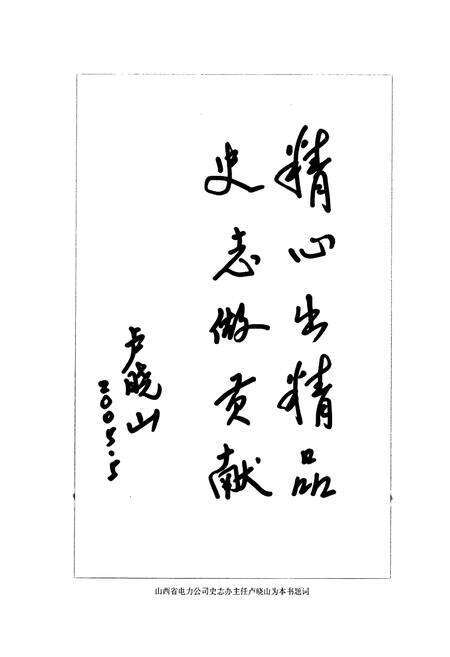 精心出精品
史志做贡献
卢晓山
2005.5
山西省电力公司史志办主任卢晓山为本书题词